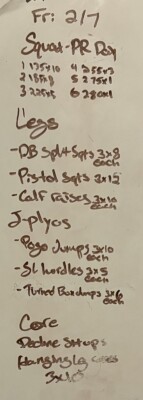 Fr: 2/7
Squat-PR Day
1 135x10 4 255x3
2 185x8 5 275x1
3 225x5 6 280x1
Legs
-DB Split Sqts 3x8
each
-Pistol Sqts 3x12
-Calf raises 3x10
each
J-plyos
-Pogo Jumps 3x10
each
-SL hurdles 3x5
each
-Turned Box Jumps 3x6
each
Core
Decline Situps
Hanging Leg
3x10